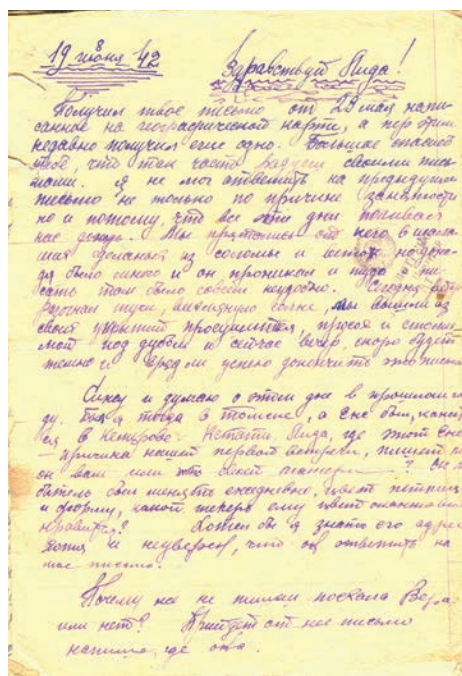 19 июня 42
Здравствуй Лида!
Получил твое письмо от 23 мая напи-
санное на географической карте, а перед этим
недавно получил еще одно. Большое спасибо
тебе, что так часто радуешь своими пись-
мами. Я не мог ответить на предыдущее
письмо не только по причине занятости
но и потому, что все эти дни поливает
нас дождь. Мы прятались от него в шала-
шах сделанных из соломы и веток но дож-
дя было много и он проникал и туда пи-
сать там было совсем неудобно. Сегодня
тучи, выглянуло солнце, мы вышли из
своих укрытий просушиться,
под дубом и сейчас вечер, скоро будет
темно и вряд ли успею докончить это письмо
Сижу и думаю о этом дне в прошлом го-
ду. Был я тогда в Томске, а был,
в Кемерово. Кстати, Лида, где этот
причина нашей первой встречи, пишет ли
он вам или своей матери? Он
любитель был менять ежедневно, цвет петлиц
и форму, какой теперь ему цвет
нравится? Хотел бы я знать его адрес
хотя и не уверен, что он ответит на
мое письмо.
Почему не пишешь поехала Вера
или нет? Придет от нее письмо
напиши, где она.